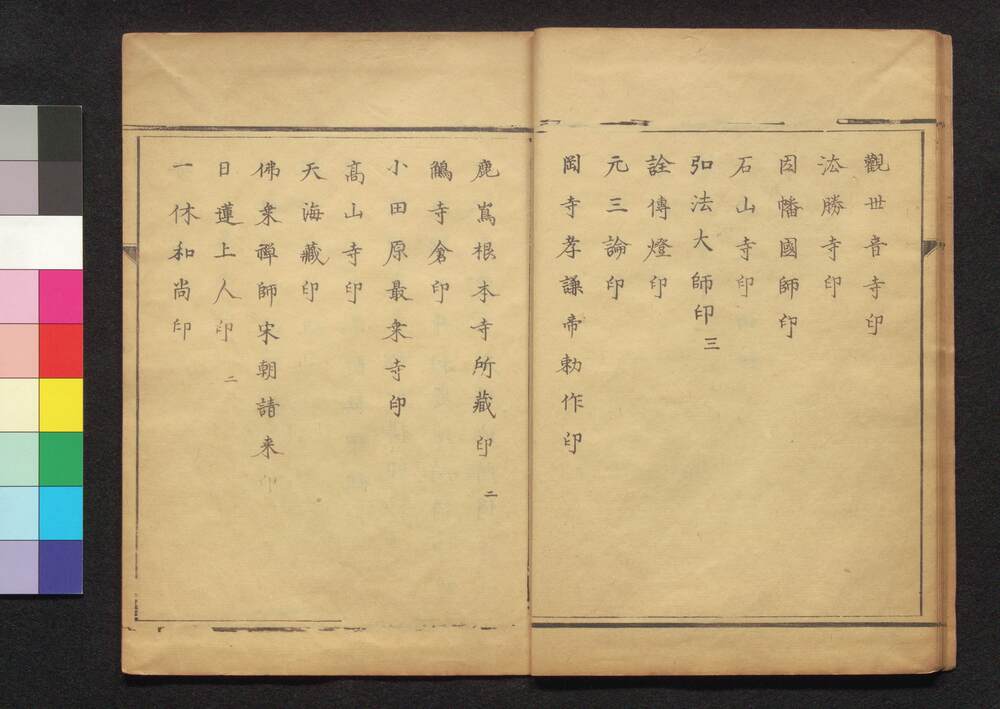 觀世音寺印
法勝寺印
因幡國師印
石山寺印
弘法大師印 三
詮傳燈印
元三論印
岡寺孝謙帝勅作印
鹿嶌根本寺所藏印 二
鵤寺倉印
小田原最衆寺印
高山寺印
天海藏印
佛衆禪師宋朝請来印
日蓮上人印 二
一休和尚印